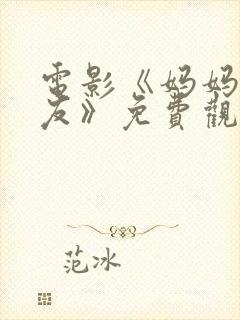 電影《妈妈
友》免費觀
范冰